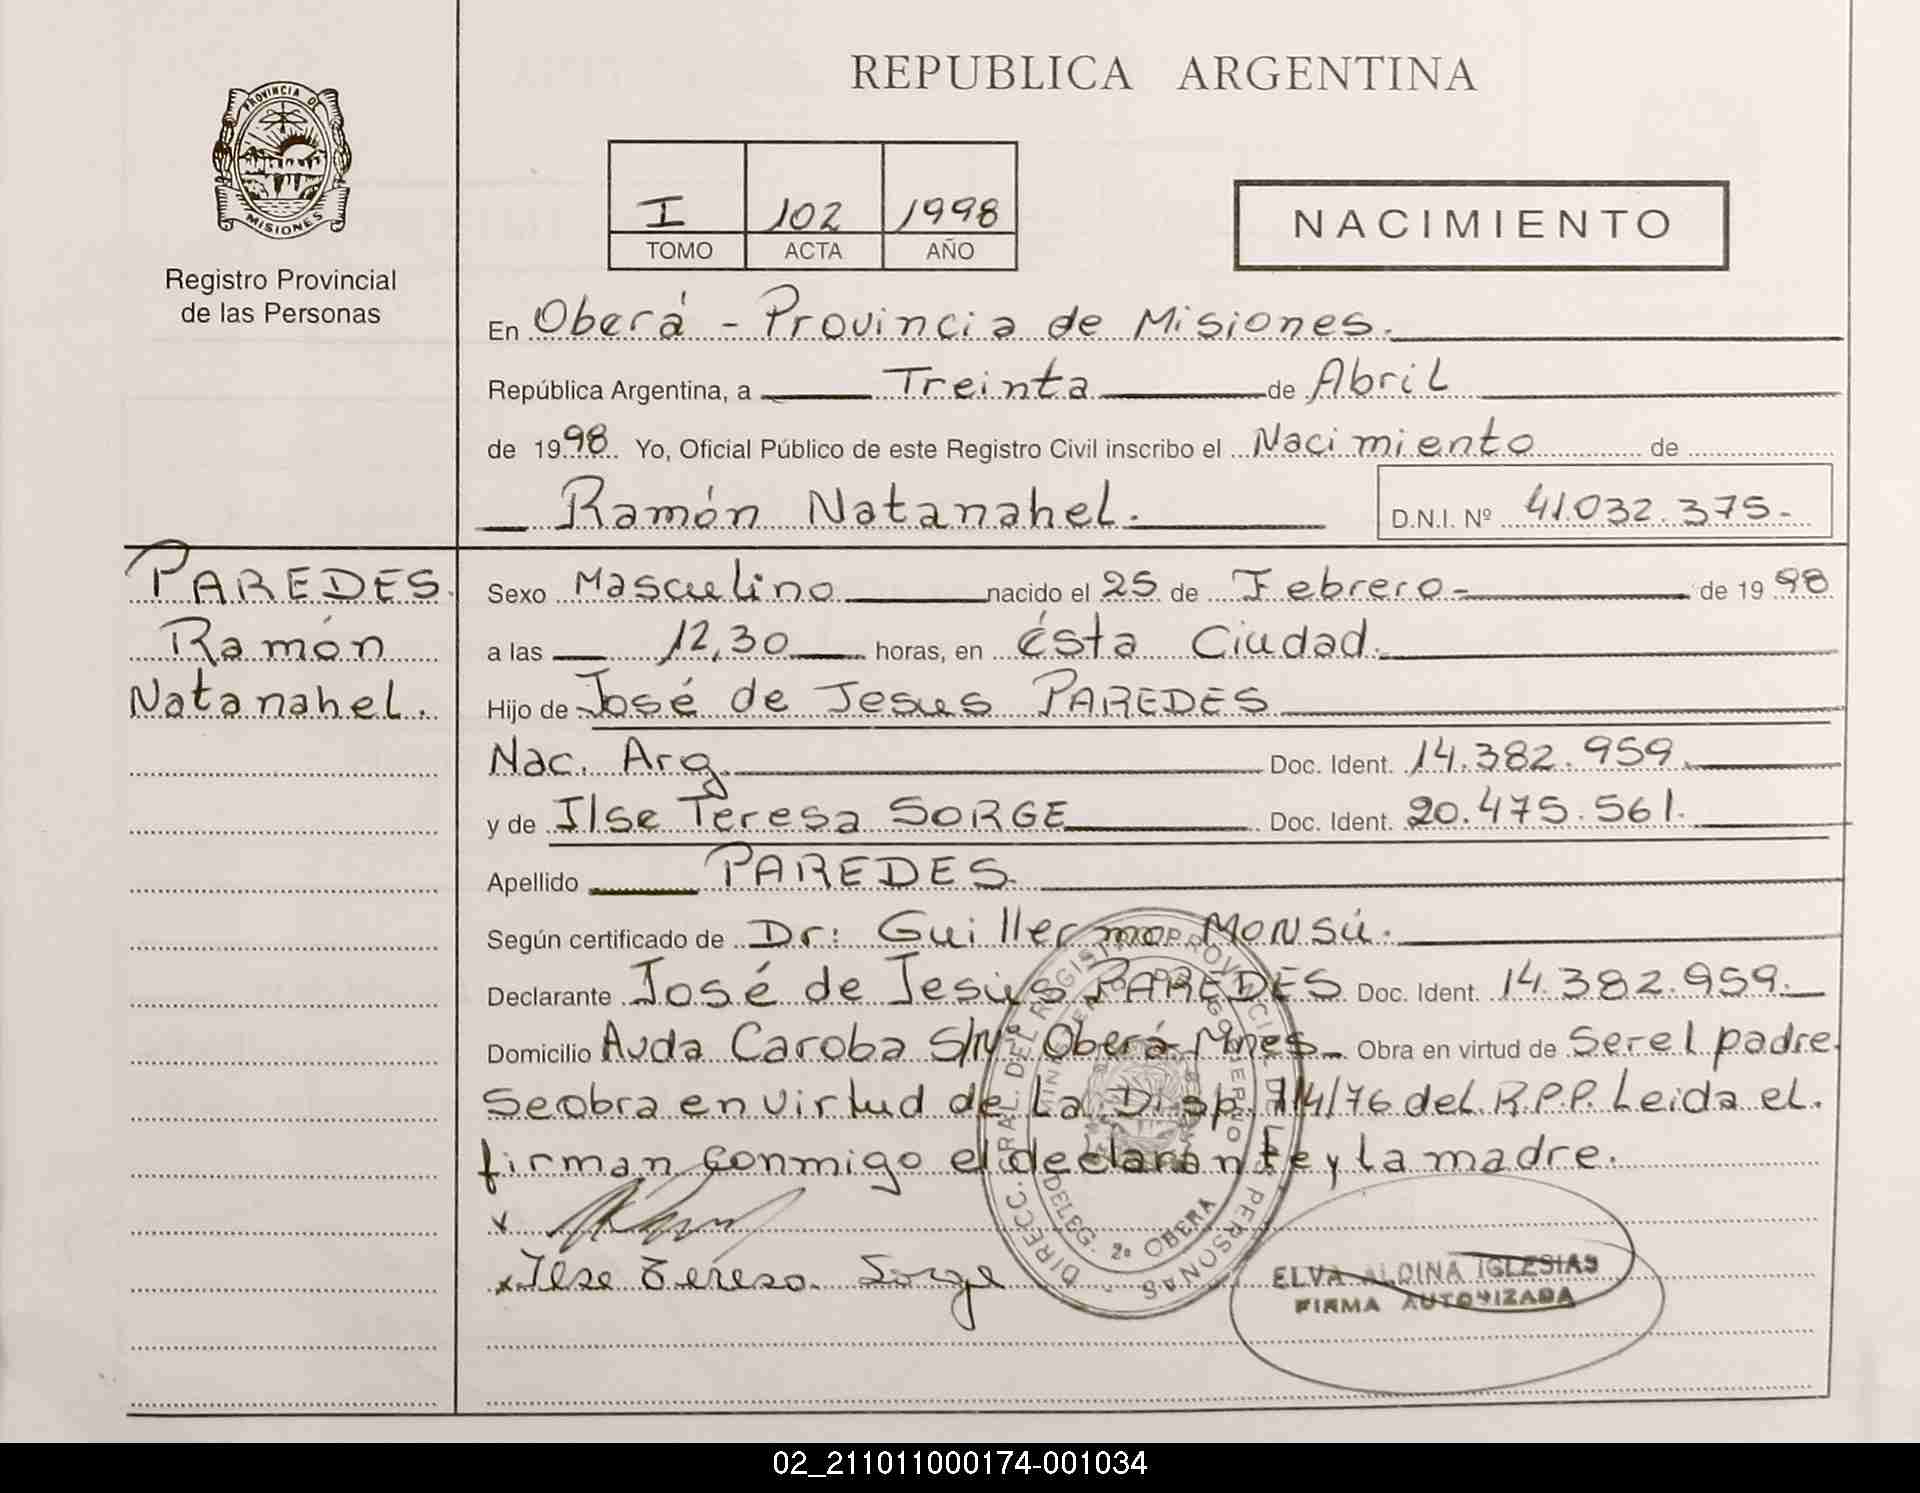 REPUBLICA ARGENTINA
PROVINCIA DE
MISIONES
Registro Provincial
de las Personas
I 102 1998
TOMO ACTA AÑO
NACIMIENTO
En Oberá - Provincia de Misiones.
República Argentina, a Treinta de Abril
de 1998. Yo, Oficial Público de este Registro Civil inscribo el Nacimiento de
Ramón Natanahel.
D.N.I. Nº 41.032.375-
PAREDES
Ramón
Natanahel.
Sexo Masculino nacido el 25 de Febrero- de 1998
a las 12,30 horas, en ésta Ciudad.
Hijo de José de Jesus PAREDES
Nac. Arg. Doc. Ident. 14.382.959.
y de Ilse Teresa SORGE Doc. Ident. 20.475.561.
Apellido PAREDES
Según certificado de Dr: Guillermo MONSÚ.
Declarante José de Jesús PAREDES Doc. Ident. 14.382.959.
Domicilio Avda Caroba S/Nº Oberá-Mnes- Obra en virtud de Ser el padre.
Se obra en virtud de La Disp. 714/76 del R.P.P. Leida el.
firman conmigo el declarante y la madre.
x
x Ilse Teresa Sorge
DIRECC. GRAL. DEL REGISTRO PROVINCIAL DE LAS PERSONAS
DELEG. 2ª OBERA
ELVA ALDINA IGLESIAS
FIRMA AUTORIZADA
02_211011000174-001034